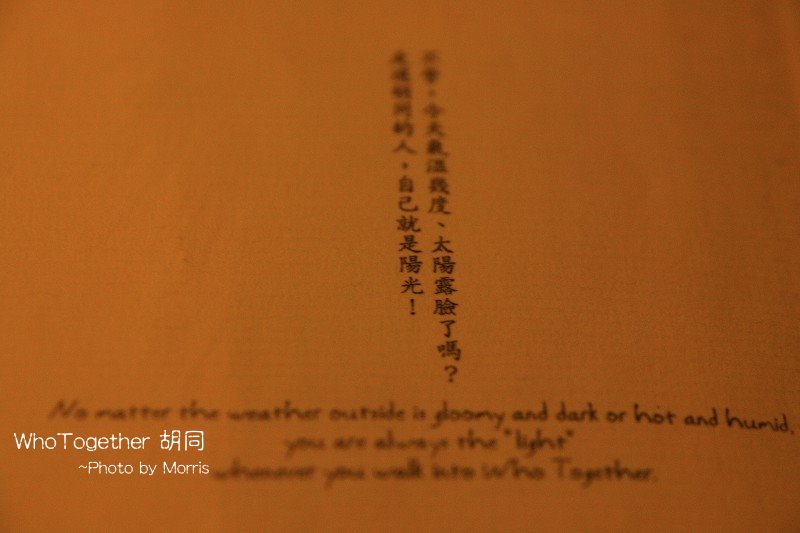 不管，今天氣溫幾度、太陽露臉了嗎？
走進胡同的人，自己就是陽光！
No matter the weather outside is gloomy and dark or hot and humid,
you are always the "light"
whenever you walk into Who Together.
WhoTogether 胡同
~Photo by Morris